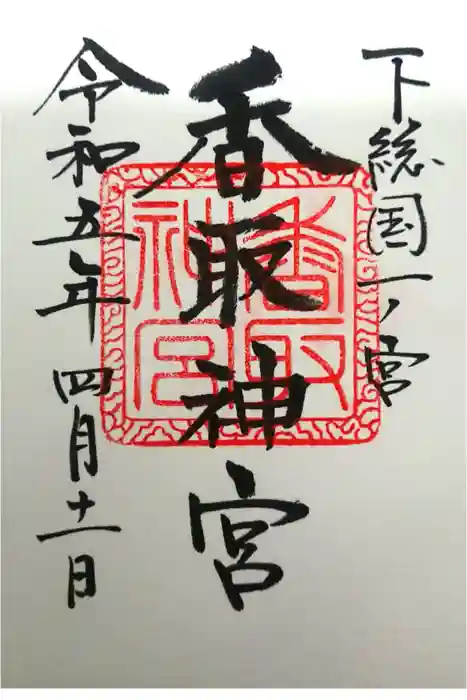 下総国一ノ宮
香取神宮
香取神宮
令和五年四月十一日